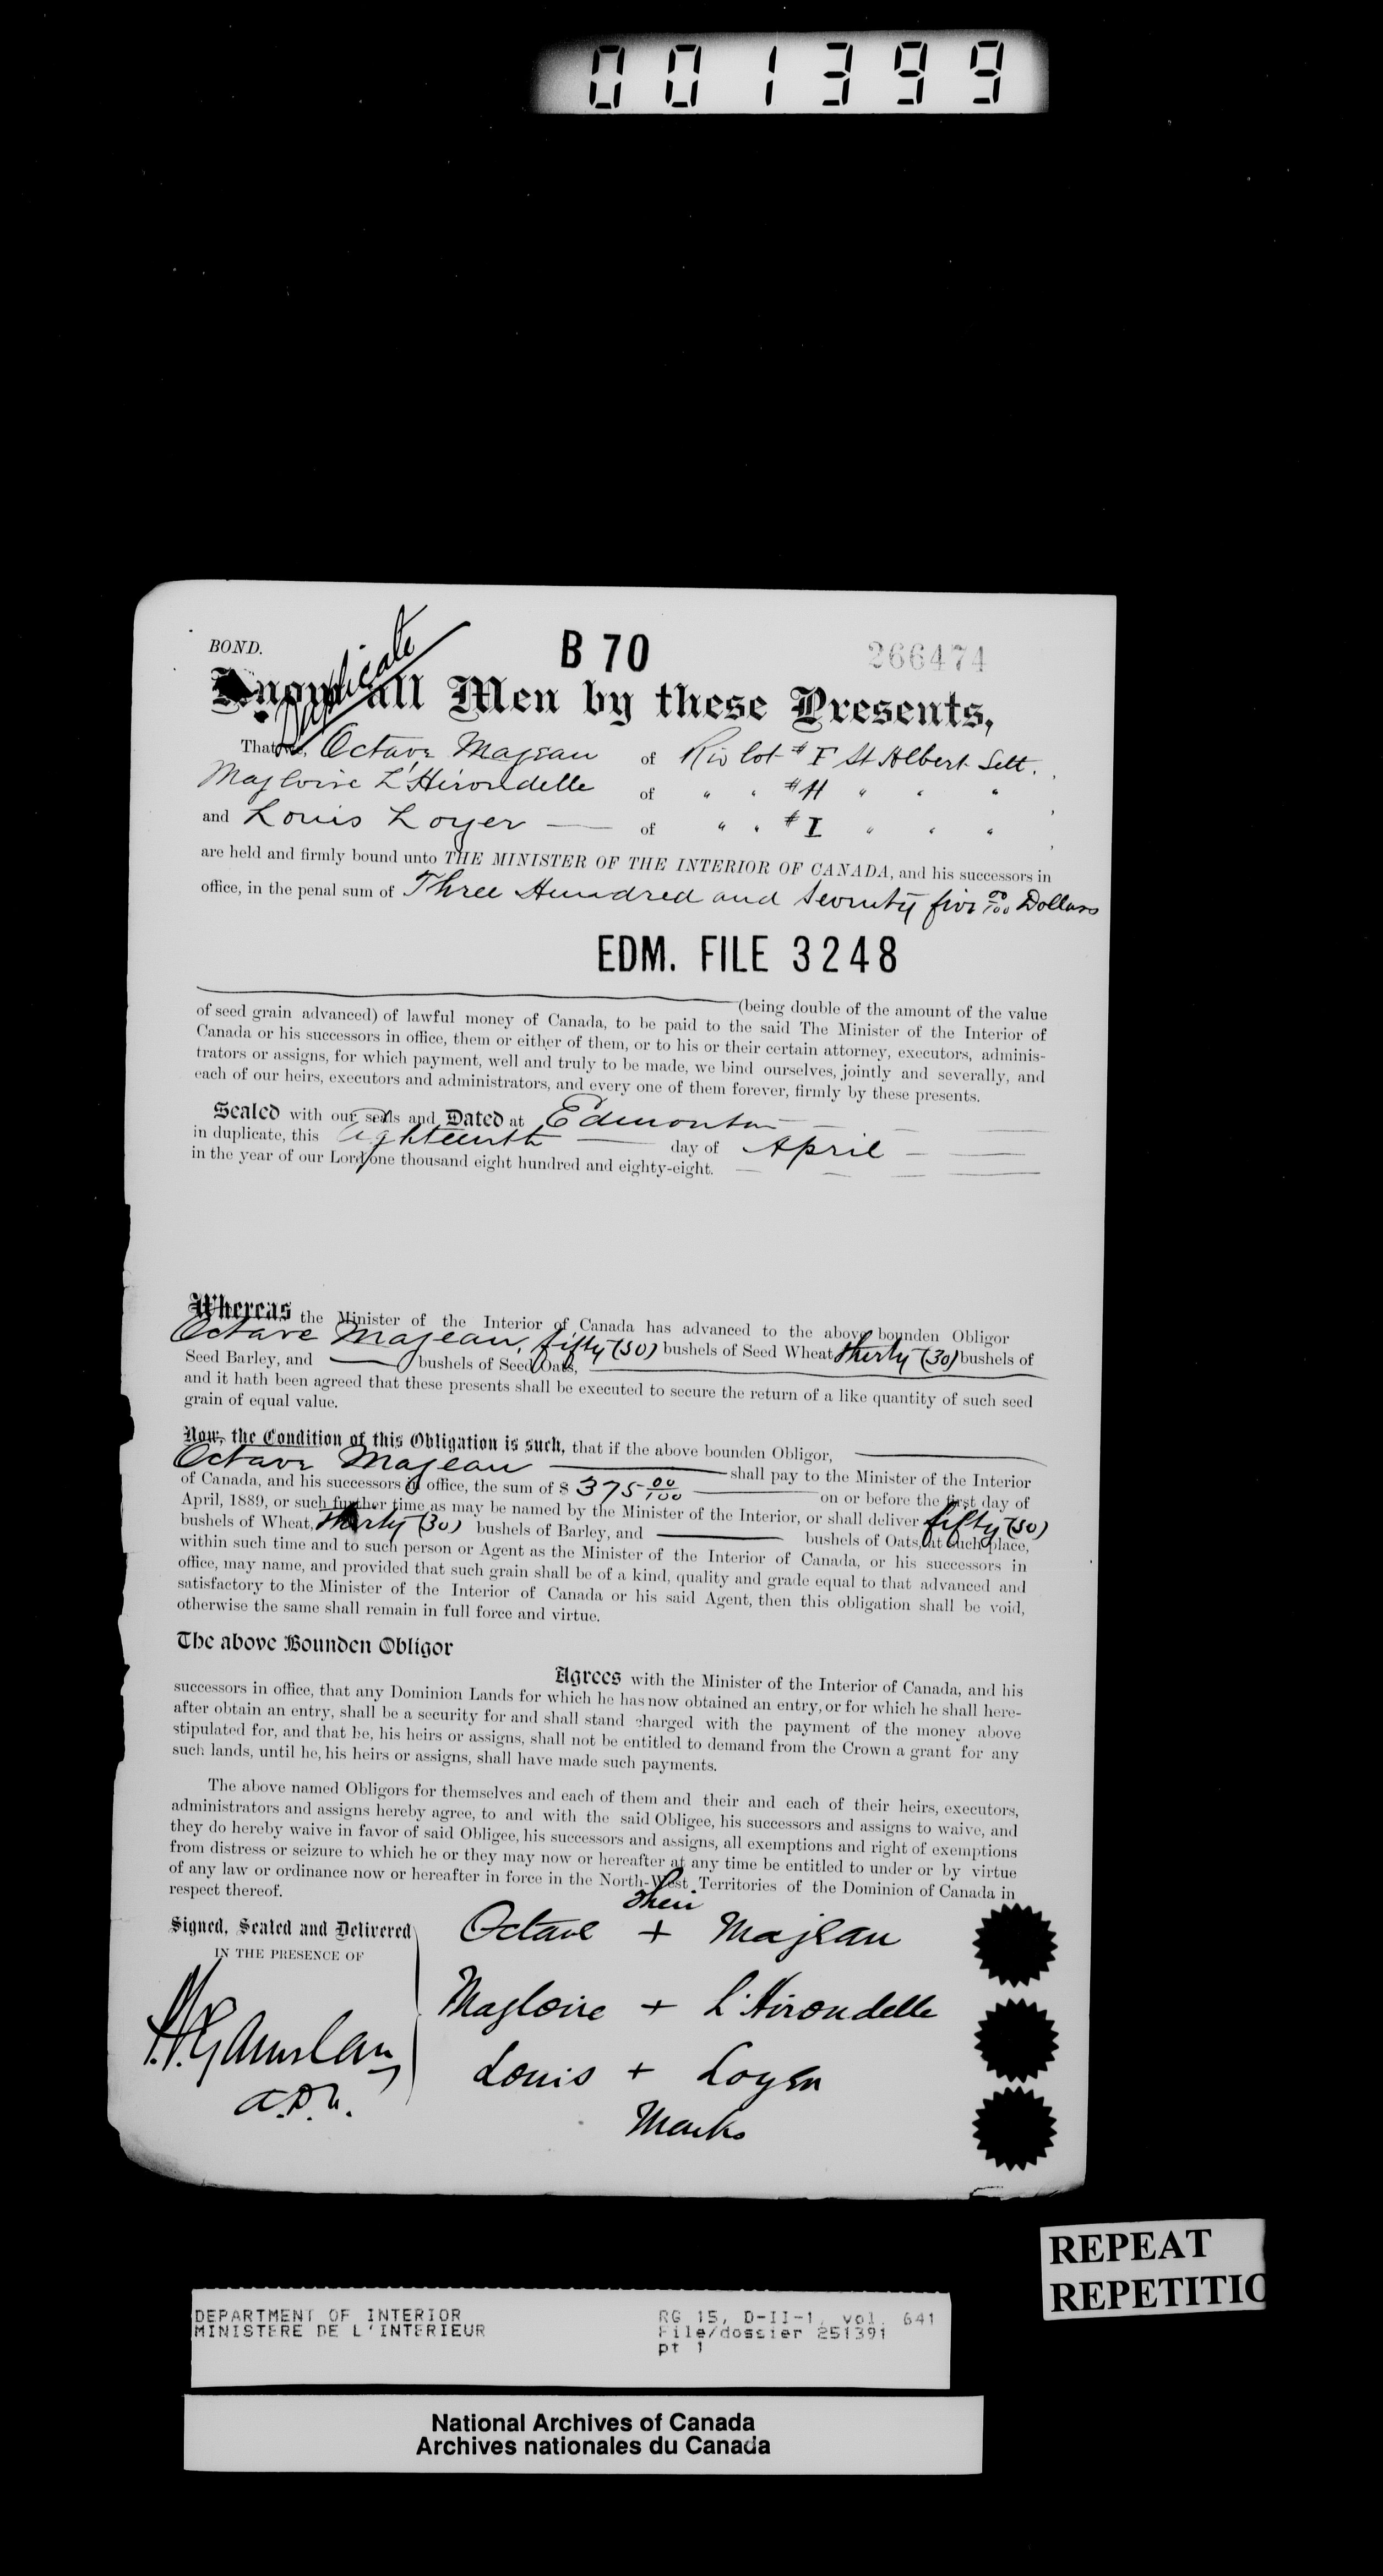 001399
BOND.
Duplicate
B 70
266474
Know all Men by these Presents,
That we, Octave Majeau of Riv lot # F St Albert Sett.
Magloire L'Hirondelle of " " # H " " "
and Louis Loyer — of " " # I " " "
are held and firmly bound unto THE MINISTER OF THE INTERIOR OF CANADA, and his successors in
office, in the penal sum of Three Hundred and Seventy five 00/100 Dollars
EDM. FILE 3248
(being double of the amount of the value
of seed grain advanced) of lawful money of Canada, to be paid to the said The Minister of the Interior of
Canada or his successors in office, them or either of them, or to his or their certain attorney, executors, adminis-
trators or assigns, for which payment, well and truly to be made, we bind ourselves, jointly and severally, and
each of our heirs, executors and administrators, and every one of them forever, firmly by these presents.
Sealed with our seals and Dated at Edmonton
in duplicate, this Eighteenth — day of April
in the year of our Lord one thousand eight hundred and eighty-eight.
Whereas the Minister of the Interior of Canada has advanced to the above bounden Obligor
Octave Majeau, fifty (50) bushels of Seed Wheat thirty (30) bushels of
Seed Barley, and — bushels of Seed Oats,
and it hath been agreed that these presents shall be executed to secure the return of a like quantity of such seed
grain of equal value.
Now, the Condition of this Obligation is such, that if the above bounden Obligor,
Octave Majeau — shall pay to the Minister of the Interior
of Canada, and his successors in office, the sum of $ 375 00/100 — on or before the first day of
April, 1889, or such further time as may be named by the Minister of the Interior, or shall deliver fifty (50)
bushels of Wheat, thirty (30) bushels of Barley, and — bushels of Oats, at such place,
within such time and to such person or Agent as the Minister of the Interior of Canada, or his successors in
office, may name, and provided that such grain shall be of a kind, quality and grade equal to that advanced and
satisfactory to the Minister of the Interior of Canada or his said Agent, then this obligation shall be void,
otherwise the same shall remain in full force and virtue.
The above Bounden Obligor
Agrees with the Minister of the Interior of Canada, and his
successors in office, that any Dominion Lands for which he has now obtained an entry, or for which he shall here-
after obtain an entry, shall be a security for and shall stand charged with the payment of the money above
stipulated for, and that he, his heirs or assigns, shall not be entitled to demand from the Crown a grant for any
such lands, until he, his heirs or assigns, shall have made such payments.
The above named Obligors for themselves and each of them and their and each of their heirs, executors,
administrators and assigns hereby agree, to and with the said Obligee, his successors and assigns to waive, and
they do hereby waive in favor of said Obligee, his successors and assigns, all exemptions and right of exemptions
from distress or seizure to which he or they may now or hereafter at any time be entitled to under or by virtue
of any law or ordinance now or hereafter in force in the North-West Territories of the Dominion of Canada in
respect thereof.
Signed, Sealed and Delivered
IN THE PRESENCE OF
their
Octave + Majeau
Magloire + L'Hirondelle
Louis + Loyer
Marks
REPEAT
REPETITIO
DEPARTMENT OF INTERIOR
MINISTERE DE L'INTERIEUR
RG 15, D-II-1, vol. 641
File/dossier 251391
pt 1
National Archives of Canada
Archives nationales du Canada